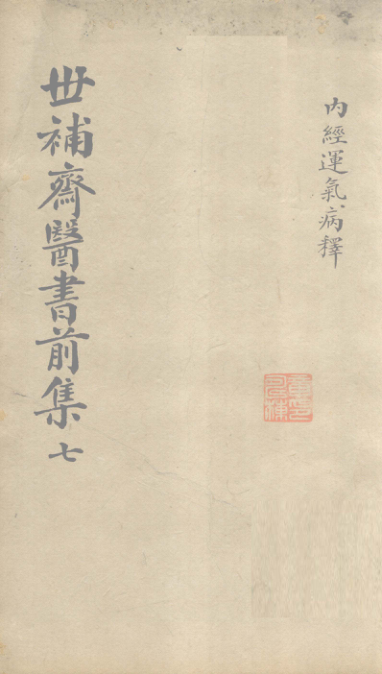 內經運氣病釋
世補齋醫書前集 七